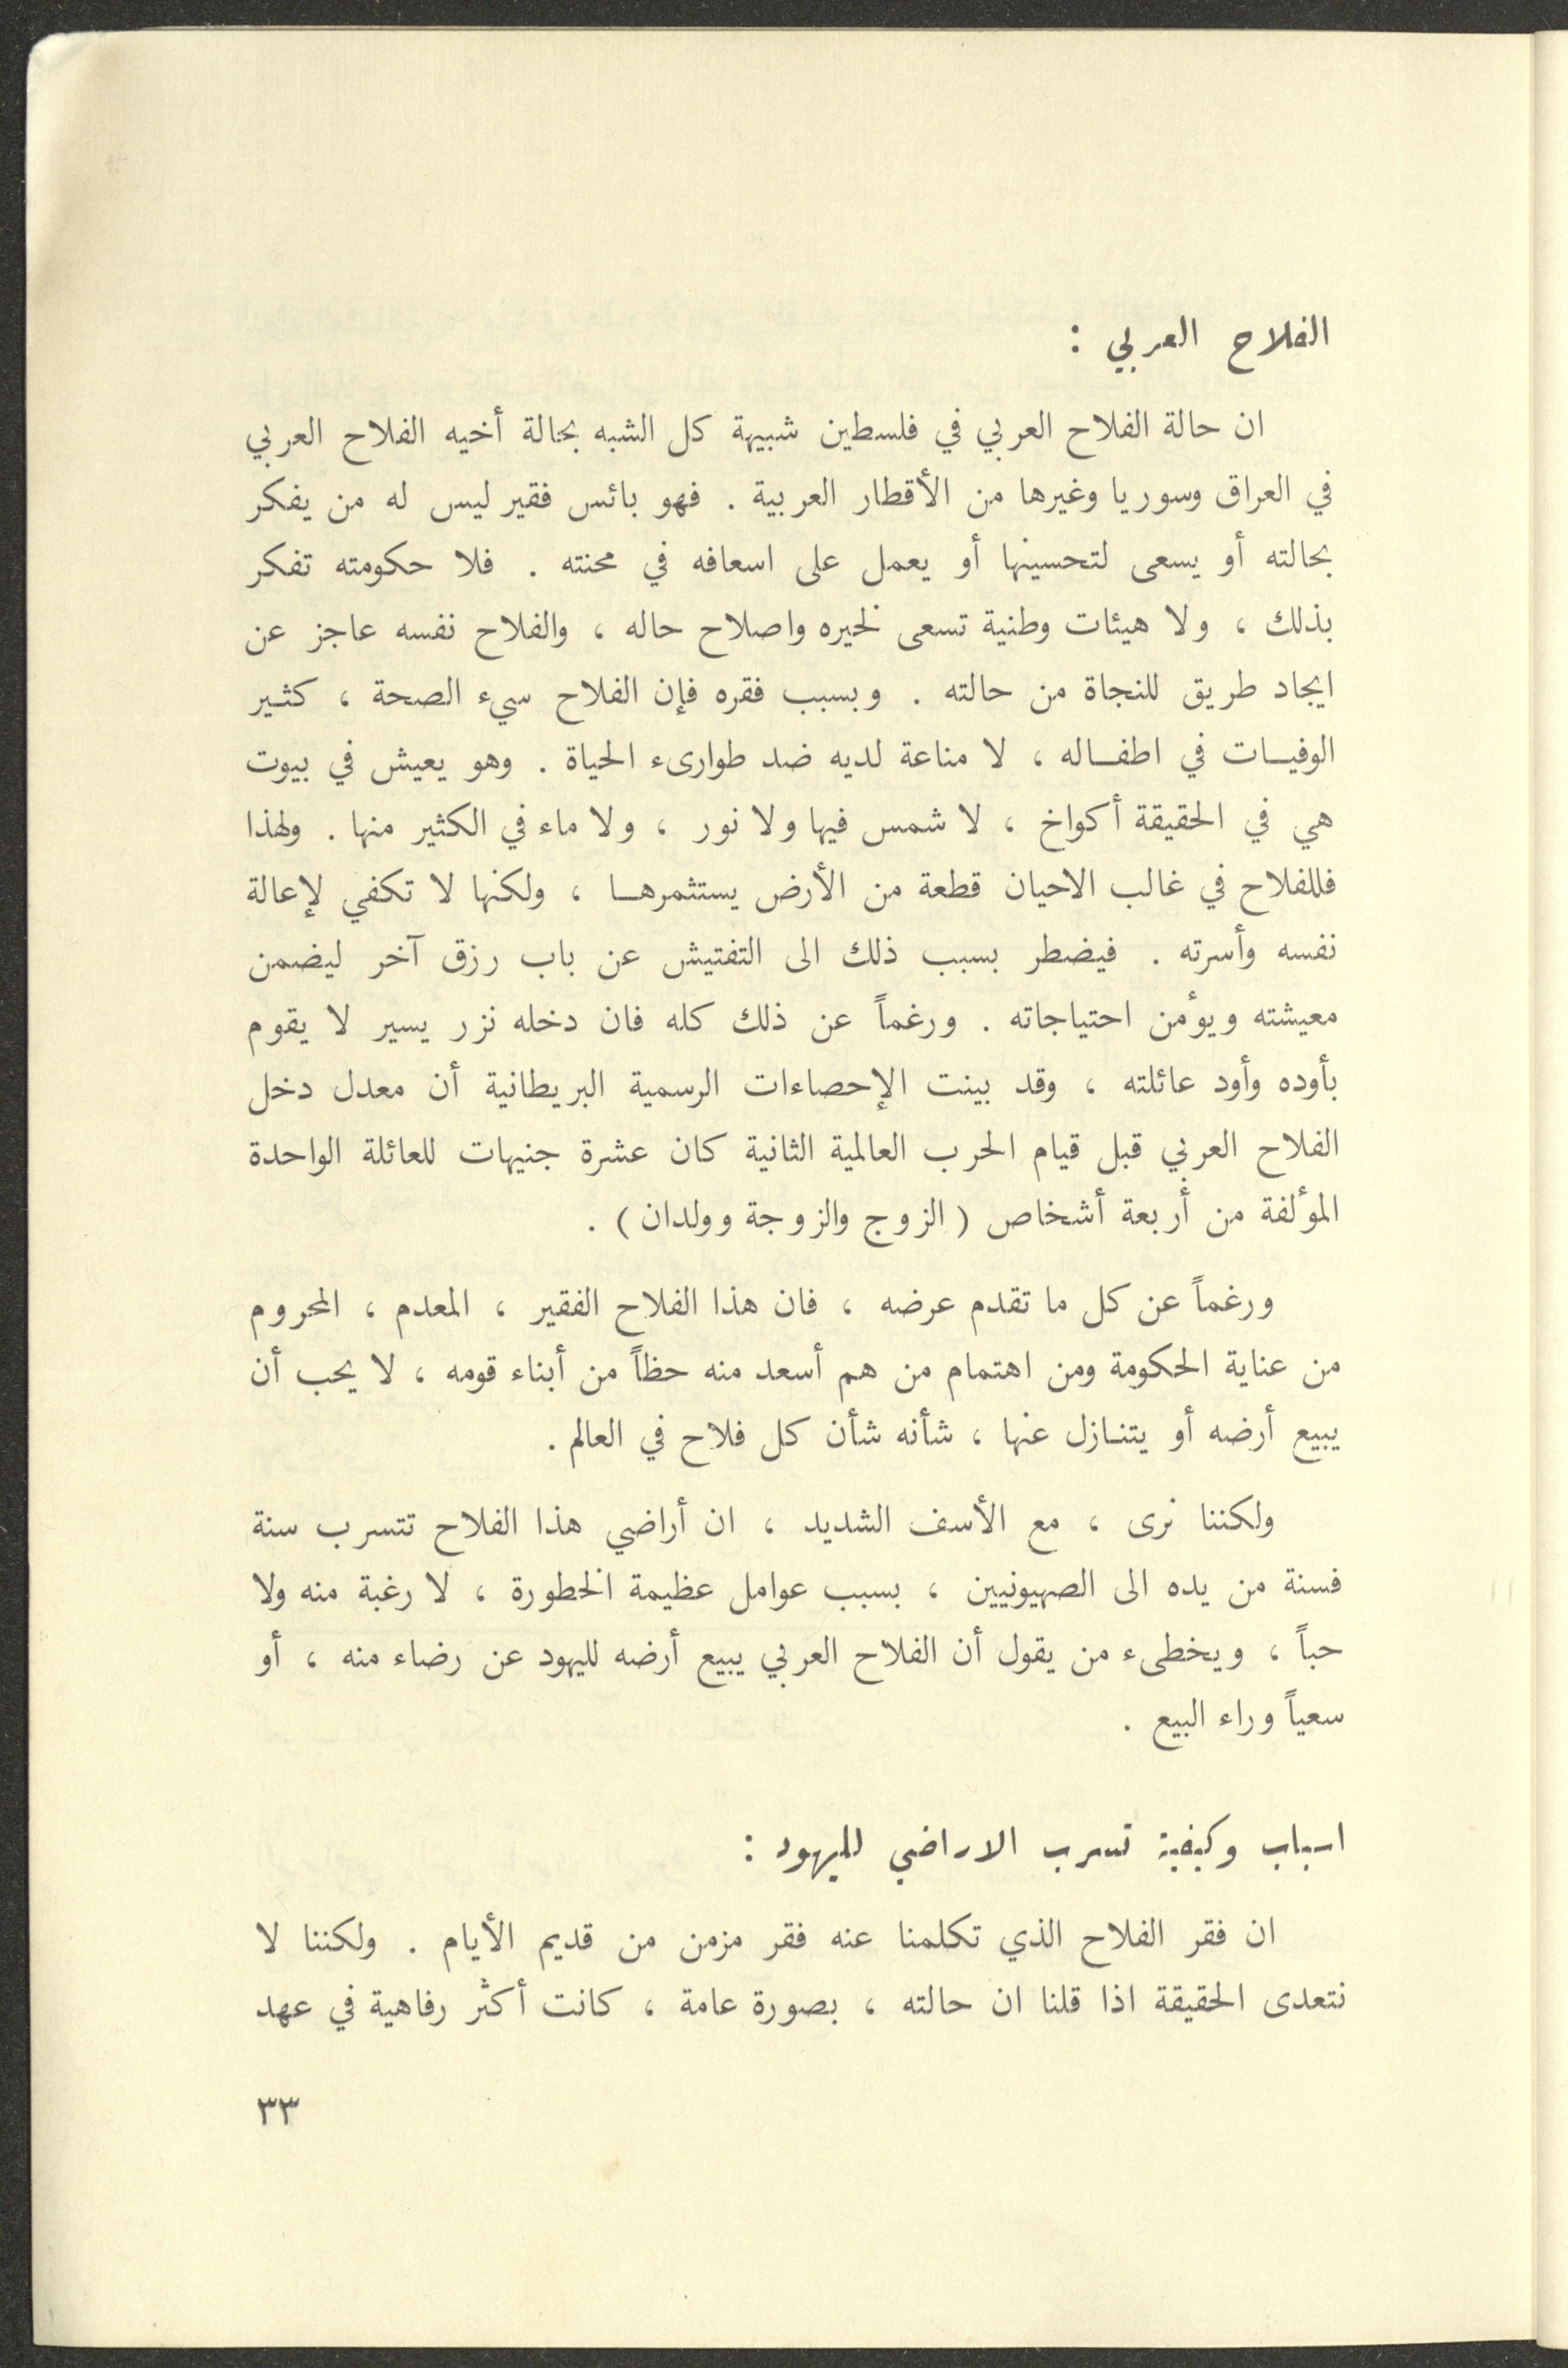 الفلاح العربي :
ان حالة الفلاح العربي في فلسطين شبيهة كل الشبه بحالة أخيه الفلاح العربي
في العراق وسوريا وغيرها من الأقطار العربية . فهو بائس فقير ليس له من يفكر
بحالته أو يسعى لتحسينها أو يعمل على اسعافه في محنته . فلا حكومته تفكر
بذلك ، ولا هيئات وطنية تسعى لخيره واصلاح حاله ، والفلاح نفسه عاجز عن
ايجاد طريق للنجاة من حالته . وبسبب فقره فإن الفلاح سيء الصحة ، كثير
الوفيات في اطفاله ، لا مناعة لديه ضد طوارىء الحياة . وهو يعيش في بيوت
هي في الحقيقة أكواخ ، لا شمس فيها ولا نور ، ولا ماء في الكثير منها . ولهذا
فللفلاح في غالب الاحيان قطعة من الأرض يستثمرها ، ولكنها لا تكفي لإعالة
نفسه وأسرته . فيضطر بسبب ذلك الى التفتيش عن باب رزق آخر ليضمن
معيشته ويؤمن احتياجاته . ورغماً عن ذلك كله فان دخله نزر يسير لا يقوم
بأوده وأود عائلته ، وقد بينت الإحصاءات الرسمية البريطانية أن معدل دخل
الفلاح العربي قبل قيام الحرب العالمية الثانية كان عشرة جنيهات للعائلة الواحدة
المؤلفة من أربعة أشخاص ( الزوج والزوجة وولدان ) .
ورغماً عن كل ما تقدم عرضه ، فان هذا الفلاح الفقير ، المعدم ، المحروم
من عناية الحكومة ومن اهتمام من هم أسعد منه حظاً من أبناء قومه ، لا يحب أن
يبيع أرضه أو يتنازل عنها ، شأنه شأن كل فلاح في العالم .
ولكننا نرى ، مع الأسف الشديد ، ان أراضي هذا الفلاح تتسرب سنة
فسنة من يده الى الصهيونيين ، بسبب عوامل عظيمة الخطورة ، لا رغبة منه ولا
حباً ، ويخطىء من يقول أن الفلاح العربي يبيع أرضه لليهود عن رضاء منه ، أو
سعياً وراء البيع .
اسباب وكيفية تسرب الاراضي لليهود :
ان فقر الفلاح الذي تكلمنا عنه فقر مزمن من قديم الأيام . ولكننا لا
نتعدى الحقيقة اذا قلنا ان حالته ، بصورة عامة ، كانت أكثر رفاهية في عهد
٣٣